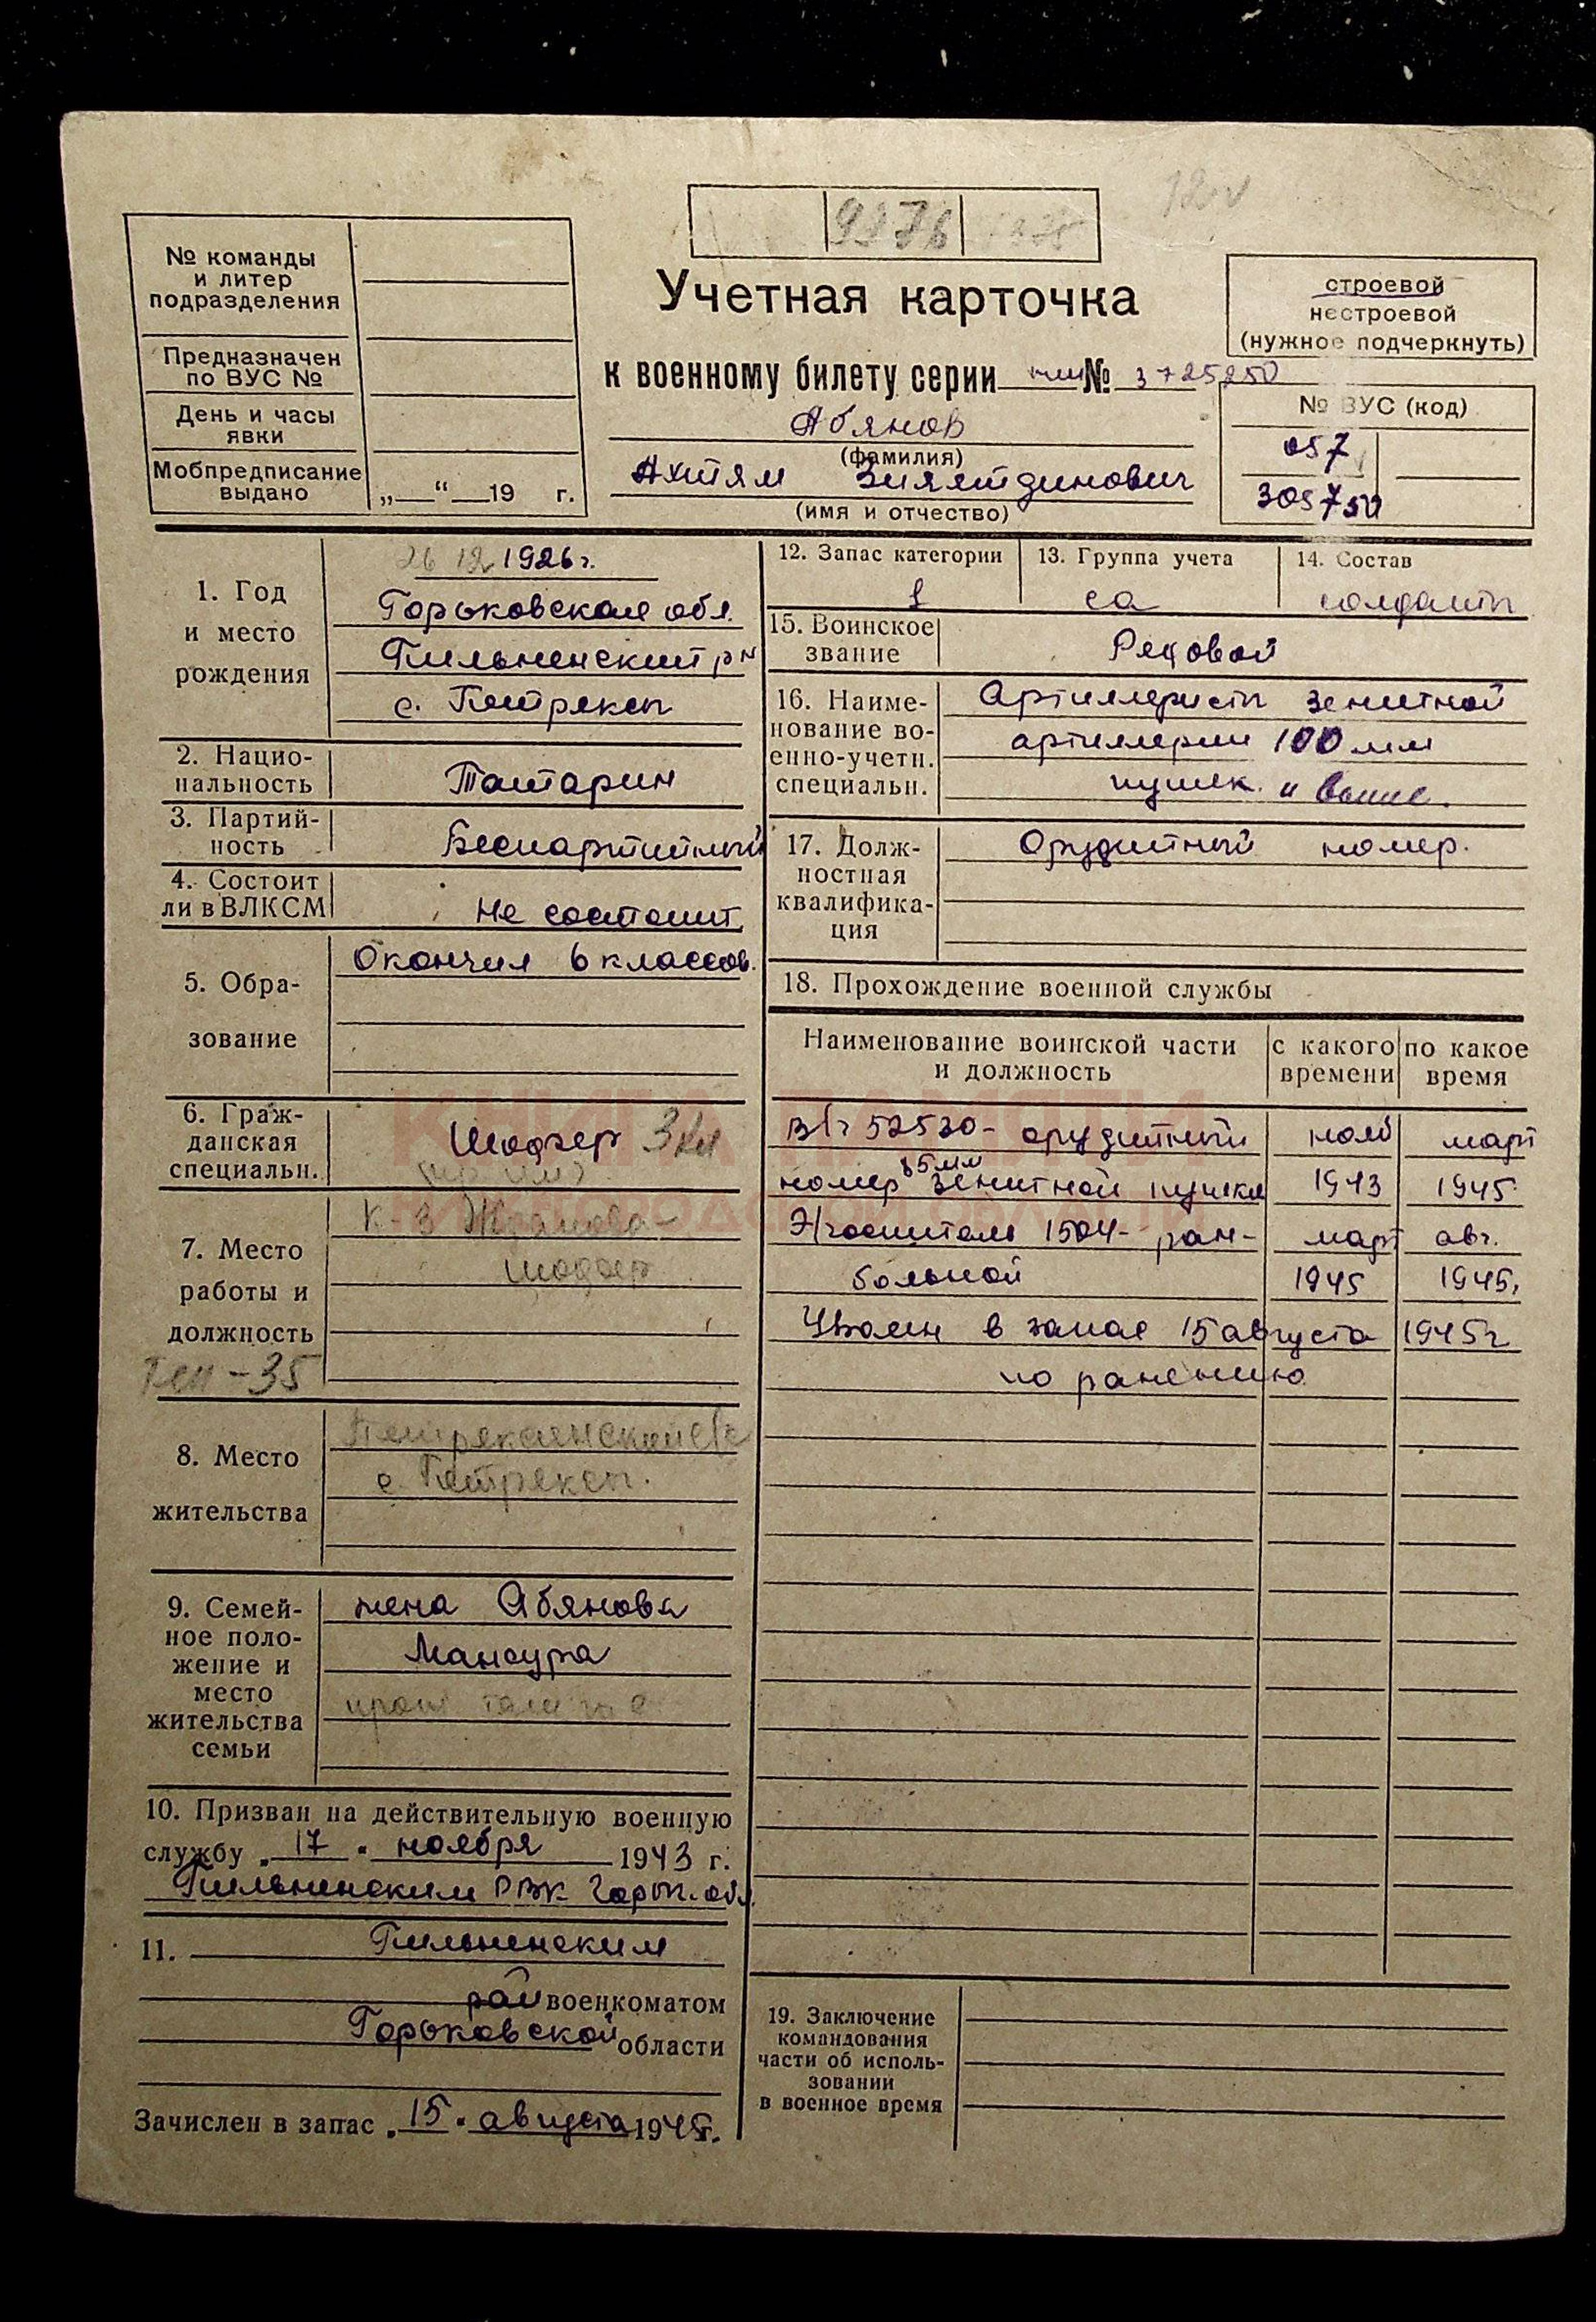 9276
№ команды
и литер
подразделения
Предназначен
по ВУС №
День и часы
явки
Мобпредписание
выдано
„ “ 19 г.
Учетная карточка
к военному билету серии № 3725250
Абянов
(фамилия)
Ахтям Зиятдинович
(имя и отчество)
строевой
нестроевой
(нужное подчеркнуть)
№ ВУС (код)
057
305750
1. Год
и место
рождения
26 12 1926 г.
Горьковская обл.
Пильненский р н
с. Петряксы
2. Нацио-
нальность
Татарин
3. Партий-
ность
Беспартийный
4. Состоит
ли в ВЛКСМ
Не состоит
5. Обра-
зование
Окончил 6 классов.
6. Граж-
данская
специальн.
Шофер 3 кл
7. Место
работы и
должность
к-з Жданова-
шофер
8. Место
жительства
с. Петряксы.
9. Семей-
ное поло-
жение и
место
жительства
семьи
жена Абянова
Мансура
10. Призван на действительную военную
службу „17" ноября 1943 г.
Пильненским РВК Горьк. обл.
11. Пильненским
рай военкоматом
Горьковской области
Зачислен в запас „15" августа 1945 г.
12. Запас категории
1
13. Группа учета
са
14. Состав
солдаты
15. Воинское
звание
Рядовой
16. Наиме-
нование во-
енно-учетн.
специальн.
Артиллеристы зенитной
артиллерии 100 мм
пушек и выше.
17. Долж-
ностная
квалифика-
ция
Орудийный номер.
18. Прохождение военной службы
Наименование воинской части
и должность
с какого
времени
по какое
время
в/ч 52530 - орудийный нояб март
номер 85 мм зенитной пушки 1943 1945
Э/госпиталь 1504 - ран- март авг.
больной 1945 1945.
Уволен в запас 15 августа 1945 г
по ранению
19. Заключение
командования
части об исполь-
зовании
в военное время
КНИГА ПАМЯТИ
НИЖЕГОРОДСКОЙ ОБЛАСТИ